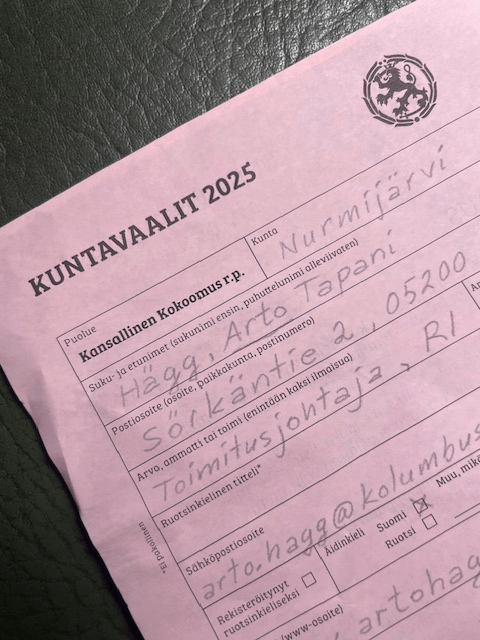 KUNTAVAALIT 2025
Puolue
Kansallinen Kokoomus r.p.
Kunta
Nurmijärvi
Suku- ja etunimet (sukunimi ensin, puhuttelunimi alleviivaten)
Hägg, Arto Tapani
Postiosoite (osoite, paikkakunta, postinumero)
Sörkäntie 2, 05200
Arvo, ammatti tai toimi (enintään kaksi ilmaisua)
Toimitusjohtaja, RI
Ruotsinkielinen titteli*
*Ei pakollinen
Sähköpostiosoite
arto.hagg@kolumbus
Rekisteröitynyt
ruotsinkieliseksi
Äidinkieli
Suomi
Ruotsi
Muu, mikä
(www-osoite)
artohag